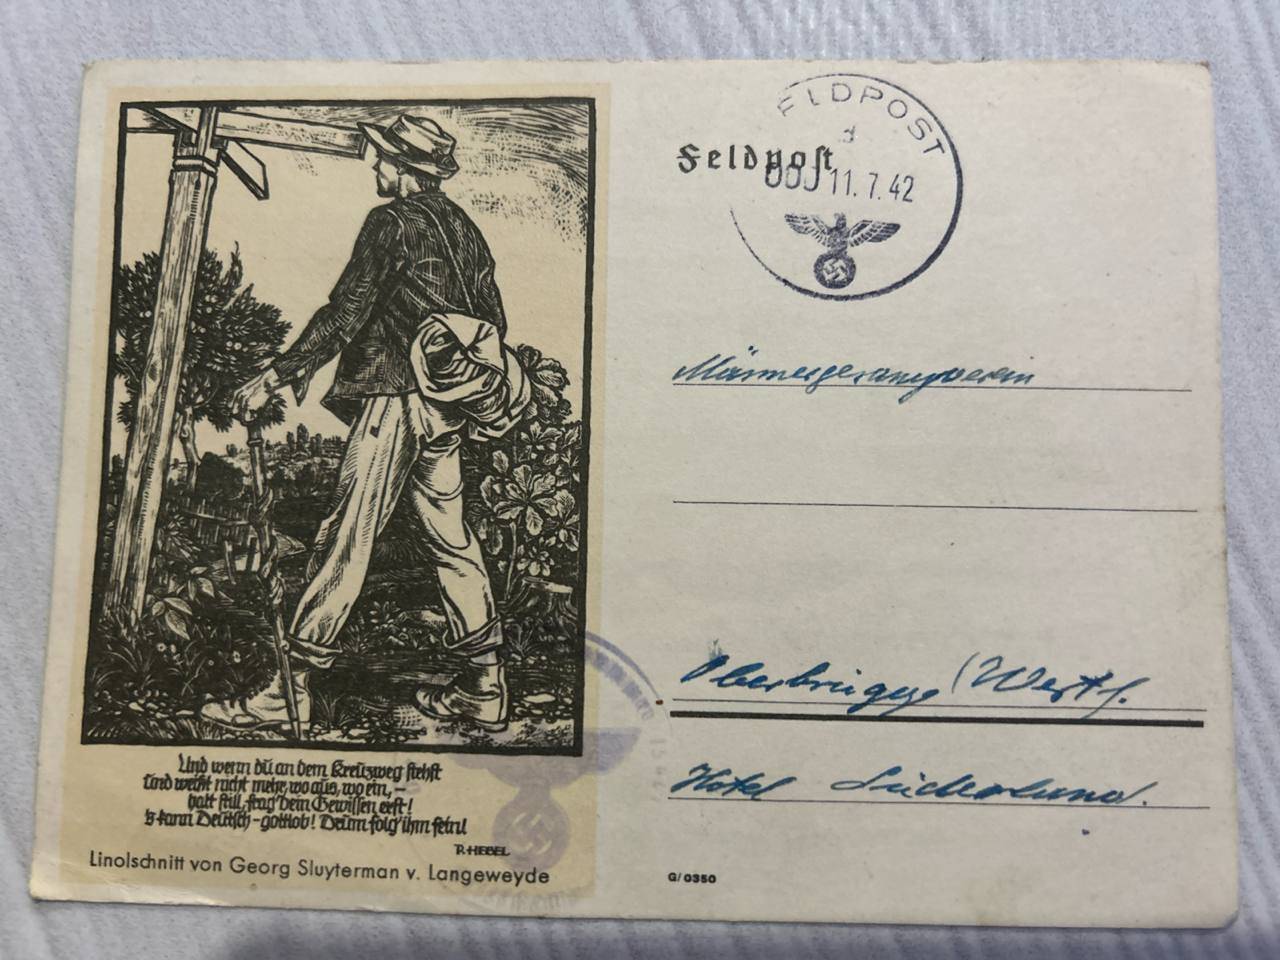 Und wenn dü an dem Kreüzweg stehst
Und weißt nicht mehr, wo aus, wo ein, –
halt still, frag' Dein Gewissen erst!
's kann Deütsch – gottlob! Deüm folg' ihm fein!
P. HEBEL
Linolschnitt von Georg Sluyterman v. Langeweyde
Feldpost
FELDPOST
d
11.7.42
Männergesangverein
Oberbrügge (Westf.
Hotel
G/0350